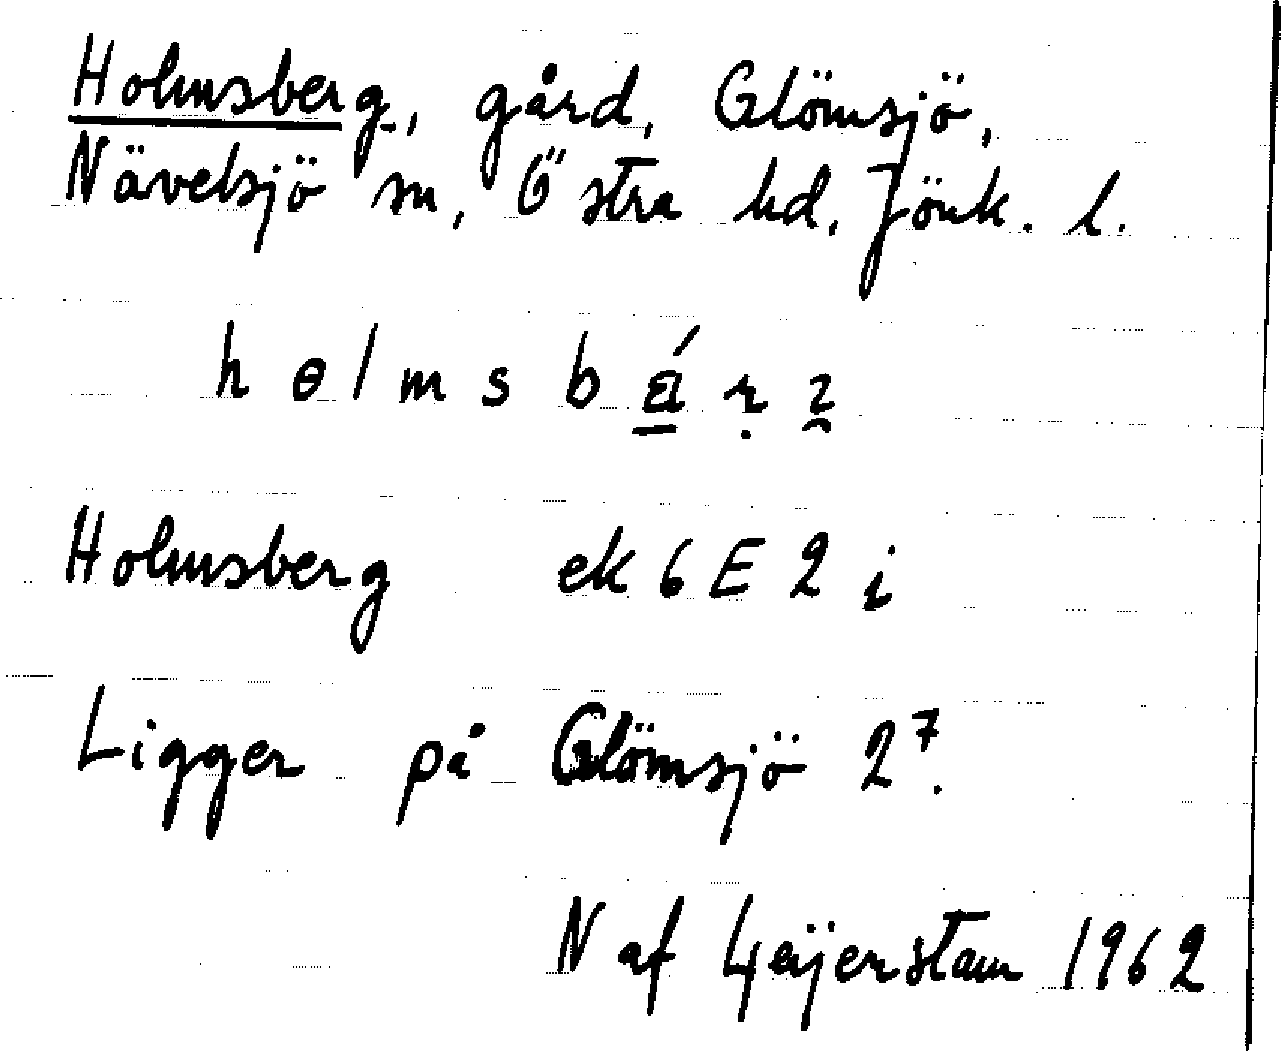 Holmsberg, gård, Glömsjö,
Nävelsjö sn, Östra hd, Jönk. l.
Holmsberg ek 6 E 2 i
Ligger på Glömsjö 2⁷.
N af Geijerstam 1962